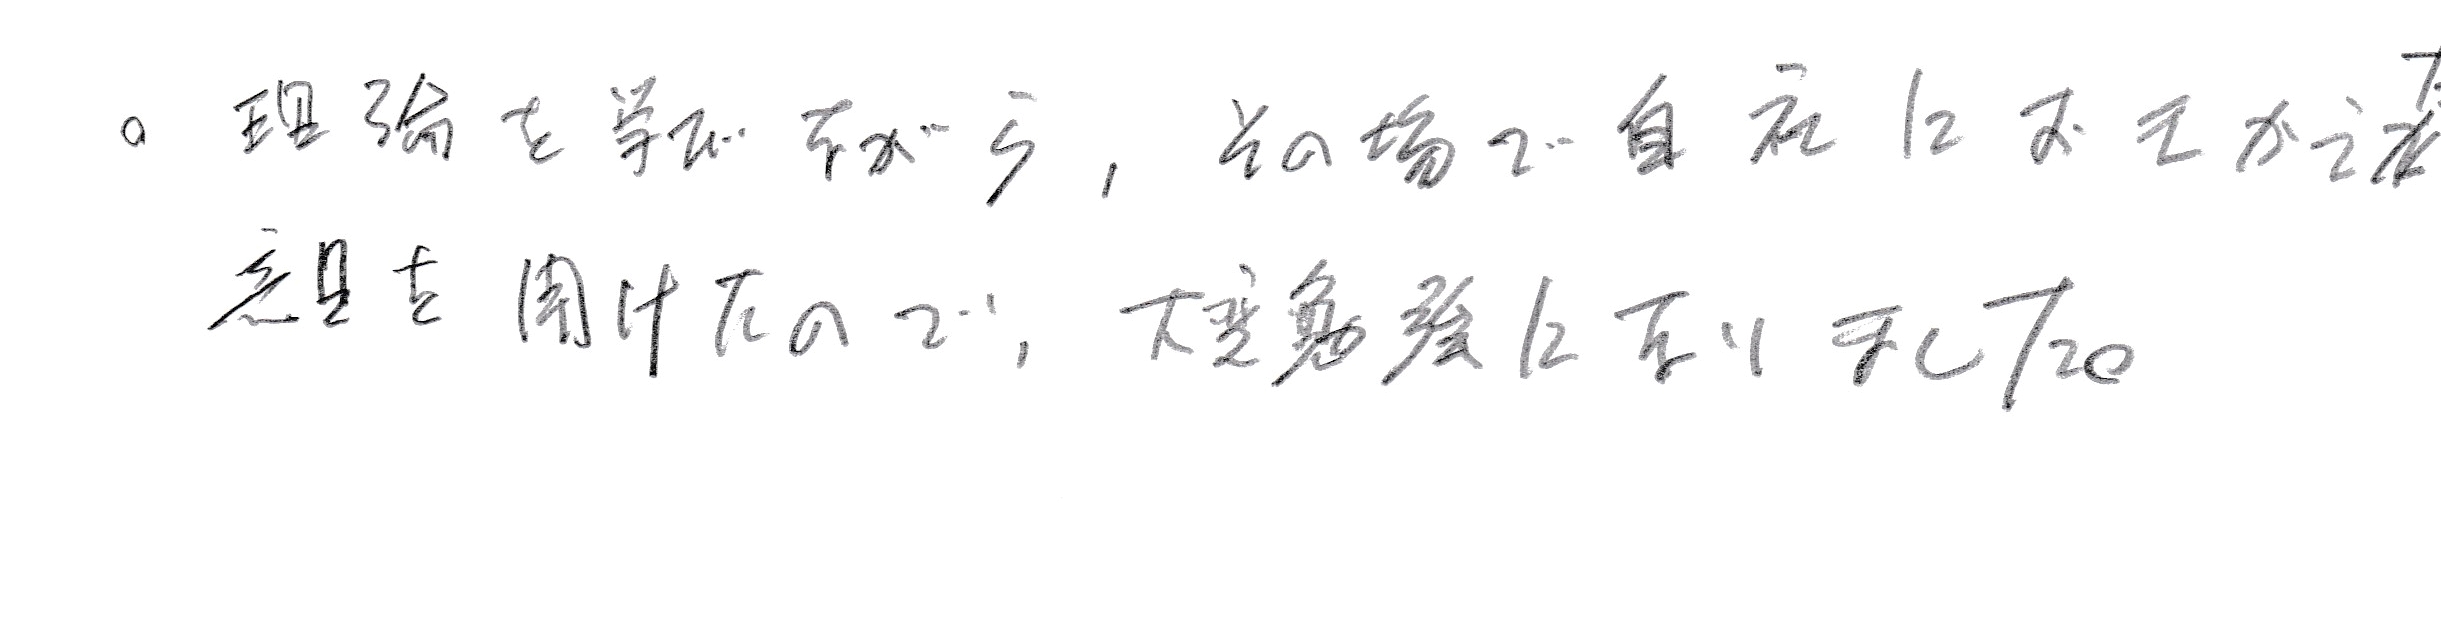 ○ 理論を学びながら，その場で自社におきかえ
意見を聞けたので，大変勉強になりました。